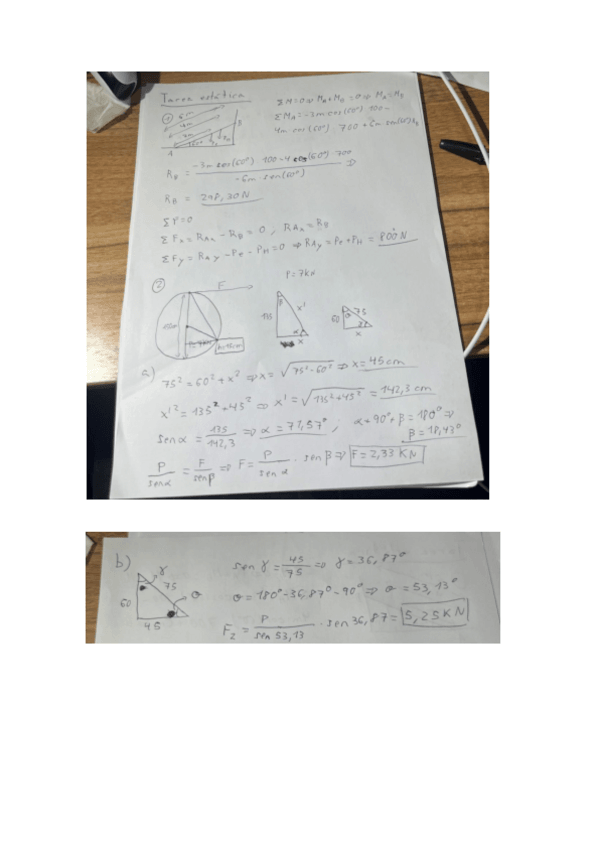 Tarea estática
① 6m
4m
3m
B
A 60°
ΣM=0 ⇒ M_A+M_B=0 ⇒ M_A=M_B
ΣM_A = -3m·cos(60°)·100 -
4m·cos(60°)·700 + 6m·sen(60°)R_B
R_B = \frac{-3m cos(60°)·100-4 cos(60°)·700}{-6m·sen(60°)} ⇒
R_B = 298,30N
ΣF=0
ΣF_x = R_{Ax} - R_B = 0 ; R_{Ax} = R_B
ΣF_y = R_{Ay} - P_e - P_H = 0 ⇒ R_{Ay} = P_e + P_H = 800N
② F P=7kN
135 β x' α x
60 75 x
h=15cm
a) 75² = 60² + x² ⇒ x = √(75²-60²) ⇒ x = 45cm
x'² = 135² + 45² ⇒ x' = √(135²+45²) = 142,3cm
senα = \frac{135}{142,3} ⇒ α = 71,57° ; α+90°+β = 180° ⇒
β = 18,43°
\frac{P}{senα} = \frac{F}{senβ} ⇒ F = \frac{P}{senα} · senβ ⇒ F = 2,33 KN
b) γ 75 θ
60
45
sen γ = \frac{45}{75} ⇒ γ = 36,87°
θ = 180° - 36,87° - 90° ⇒ θ = 53,13°
F_2 = \frac{P}{sen 53,13} · sen 36,87 = 5,25 KN